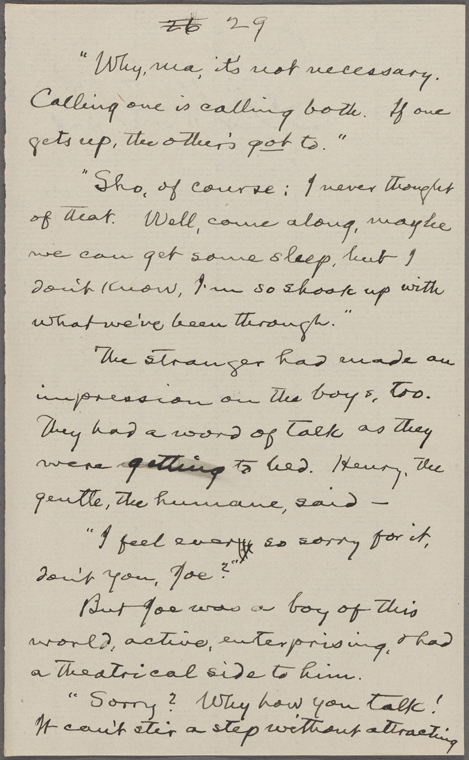 26 29
"Why, ma, it's not necessary.
Calling one is calling both. If one
gets up, the other's got to."
"Sho, of course: I never thought
of that. Well, come along, maybe
we can get some sleep, but I
don't know, I'm so shook up with
what we've been through."
The stranger had made an
impression on the boys, too.
They had a word of talk as they
were getting to bed. Henry, the
gentle, the humane, said —
"I feel ever so sorry for it,
don't you, Joe?"
But Joe was a boy of this
world, active, enterprising, & had
a theatrical side to him.
"Sorry? Why how you talk!
It can't stir a step without attracting